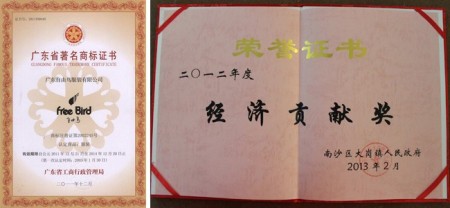 广东省著名商标证书
GUANGDONG FAMOUS TRADEMARK CERTIFICATE
广东自由鸟服装有限公司
Free Bird
自由鸟
广东省工商行政管理局
二〇一一年十二月
荣誉证书
二〇一二年度
经济贡献奖
南沙区大岗镇人民政府
2013年2月